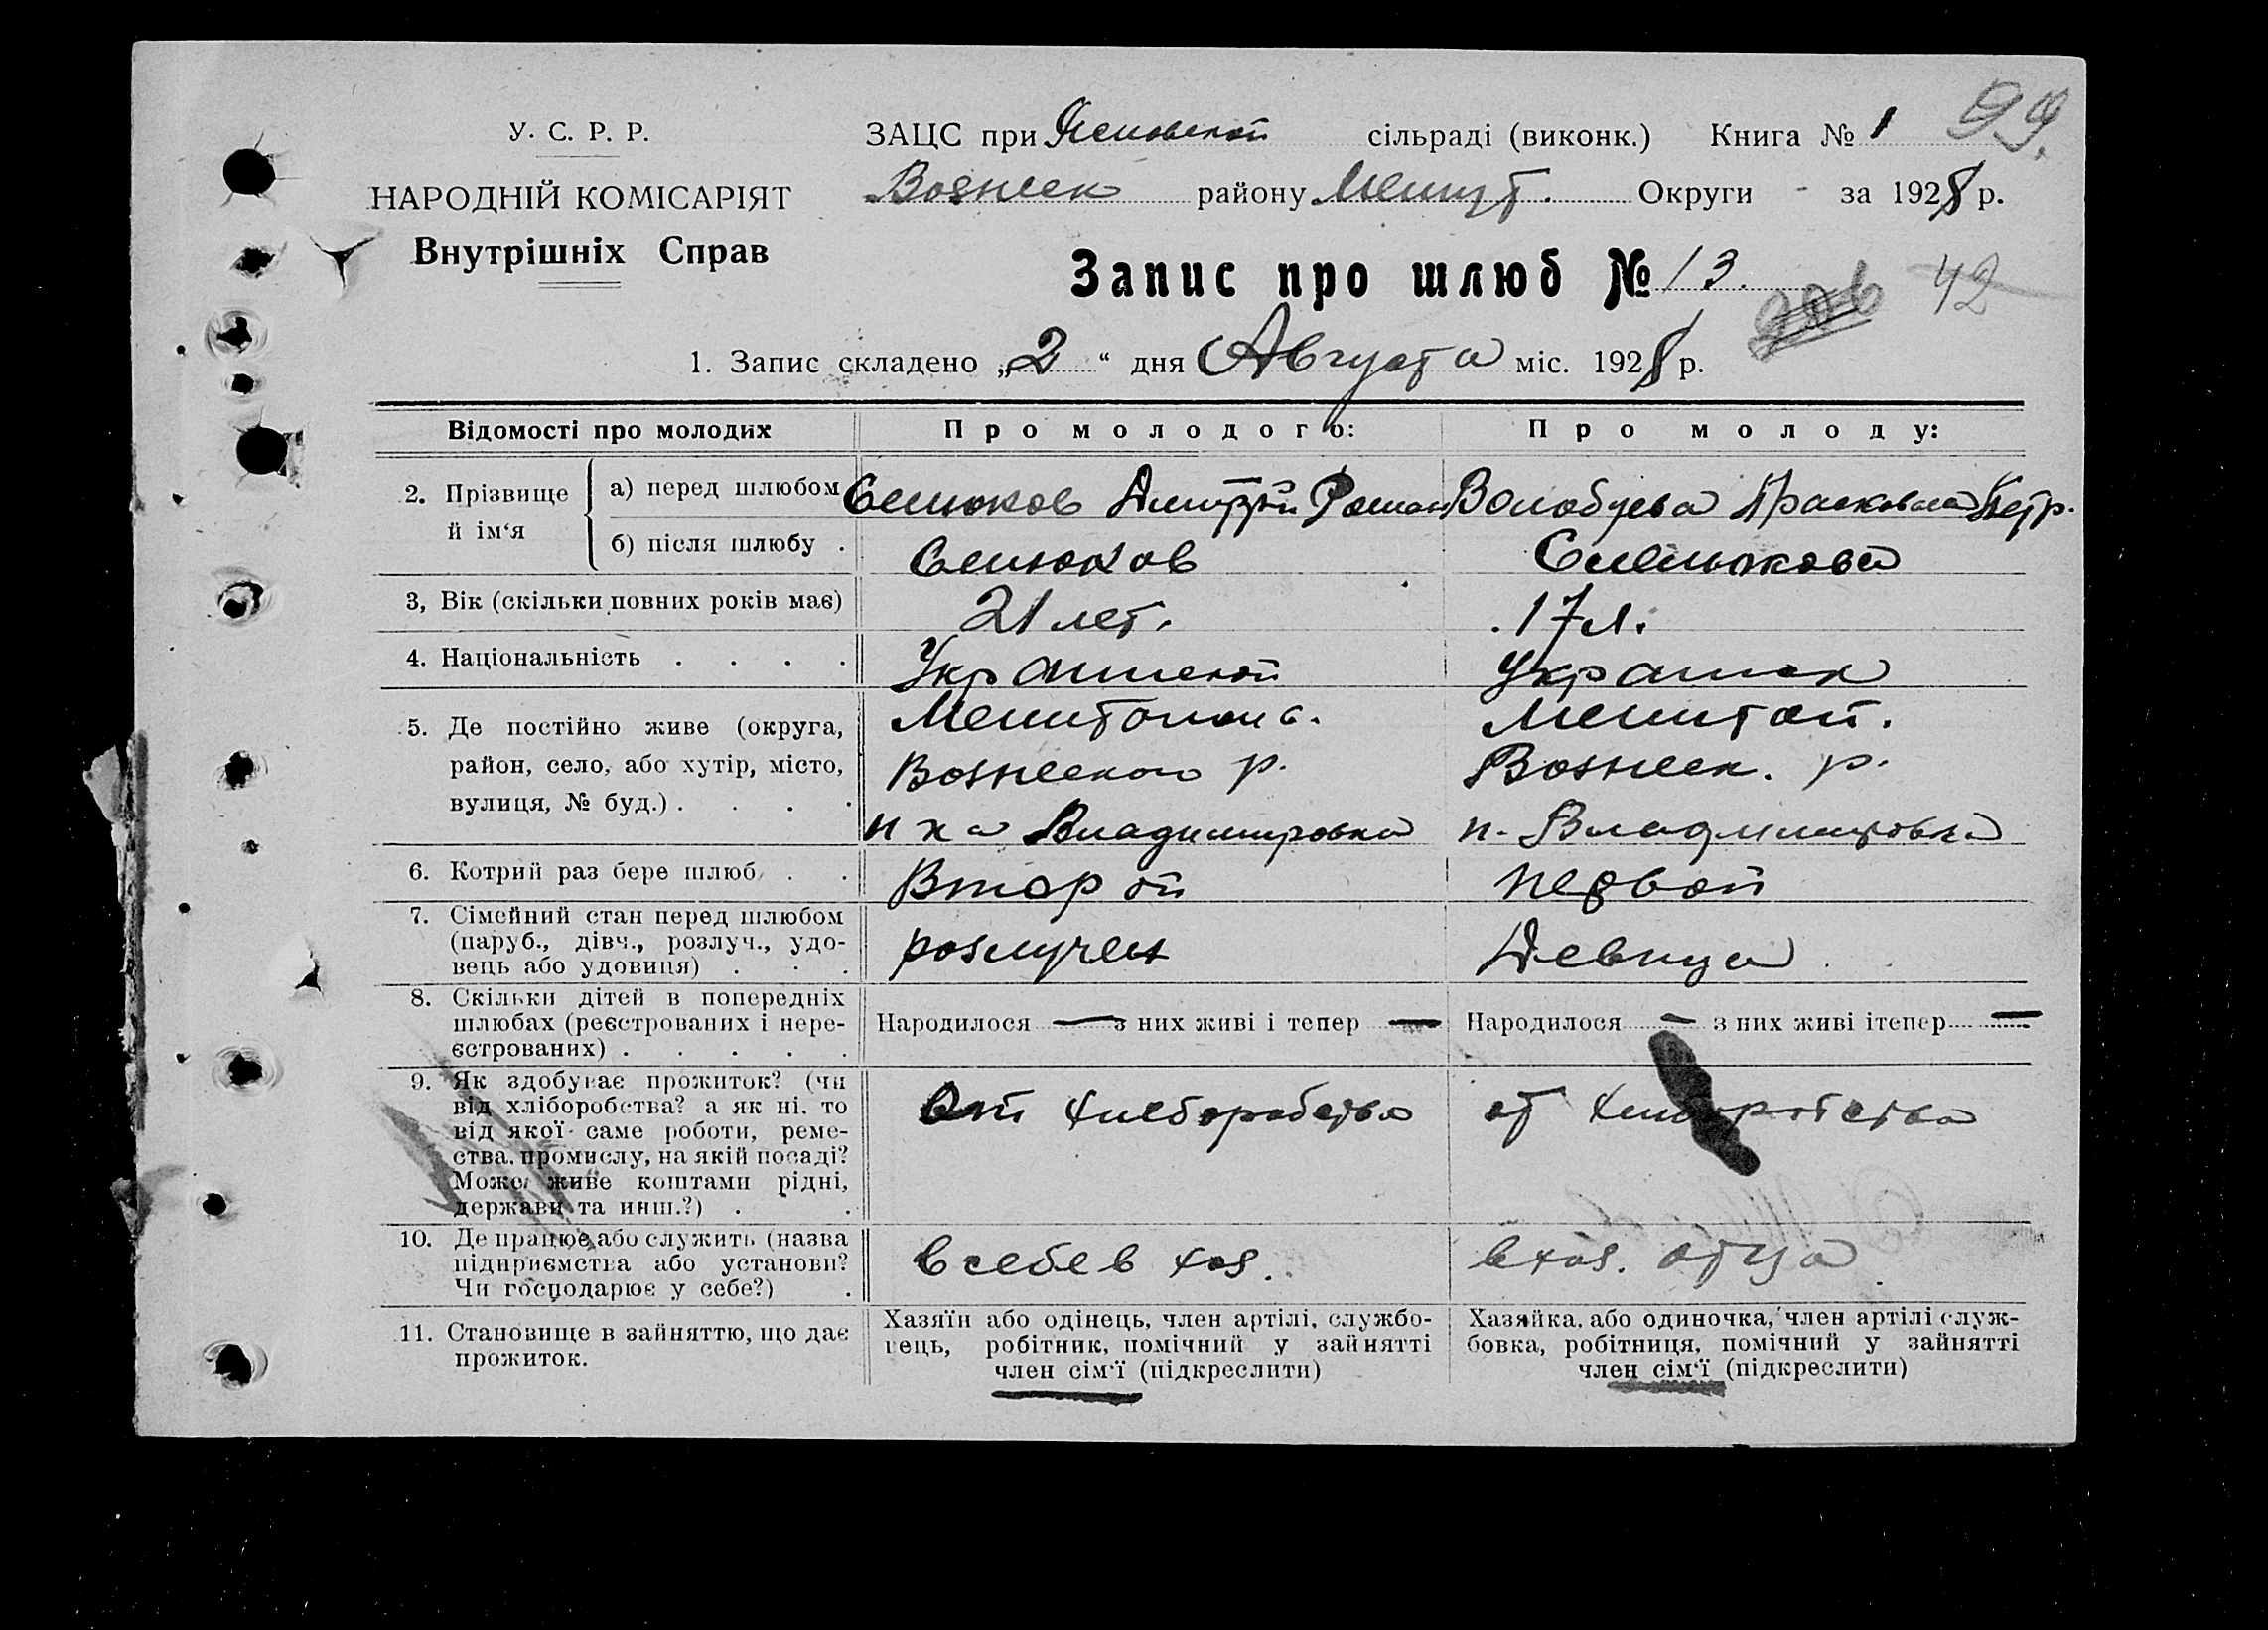 99.
У. С. Р. Р.
ЗАЦС при сільраді (виконк.) Книга № 1
НАРОДНІЙ КОМІСАРІЯТ
Вознсек району Мелит. Округи - за 1928 р.
Внутрішніх Справ
Запис про шлюб № 13.
42
1. Запис складено „2“ дня Августа міс. 1928 р.
Відомості про молодих Про молодого: Про молоду:
2. Прізвище й ім‘я
а) перед шлюбом Дмитрий Роман Волобуева Прасковия Петр.
б) після шлюбу .
3, Вік (скільки повних років має) 21 лет. 17 л.
4. Національність . . . . Украинской Украинск
5. Де постійно живе (округа, Мелитопол Мелитоп.
район, село, або хутір, місто, Вознеского р. Вознеск. р.
вулиця, № буд.) . . . . Владимировка п. Владимировка
6. Котрий раз бере шлюб . . Второй первой
7. Сімейний стан перед шлюбом
(паруб., дівч., розлуч., удо-
вець або удовиця) . . . розлучен Девица
8. Скільки дітей в попередніх
шлюбах (реєстрованих і нере-
єстрованих) . . . . .
Народилося — з них живі і тепер — Народилося — з них живі і тепер —
9. Як здобуває прожиток? (чи
від хліборобства? а як ні, то
від якої саме роботи, реме-
ства, промислу, на якій посаді?
Може живе коштами рідні,
держави та инш.?) . .
От хлеборобства от хлеборобства
10. Де працює або служить (назва
підприємства або установи?
Чи господарює у себе?) .
в себе в хоз. в хоз. отца
11. Становище в зайняттю, що дає
прожиток.
Хазяїн або одінець, член артілі, службо-
вець, робітник, помічний у зайнятті
член сім‘ї (підкреслити)
Хазяйка, або одиночка, член артілі служ-
бовка, робітниця, помічний у зайнятті
член сім‘ї (підкреслити)